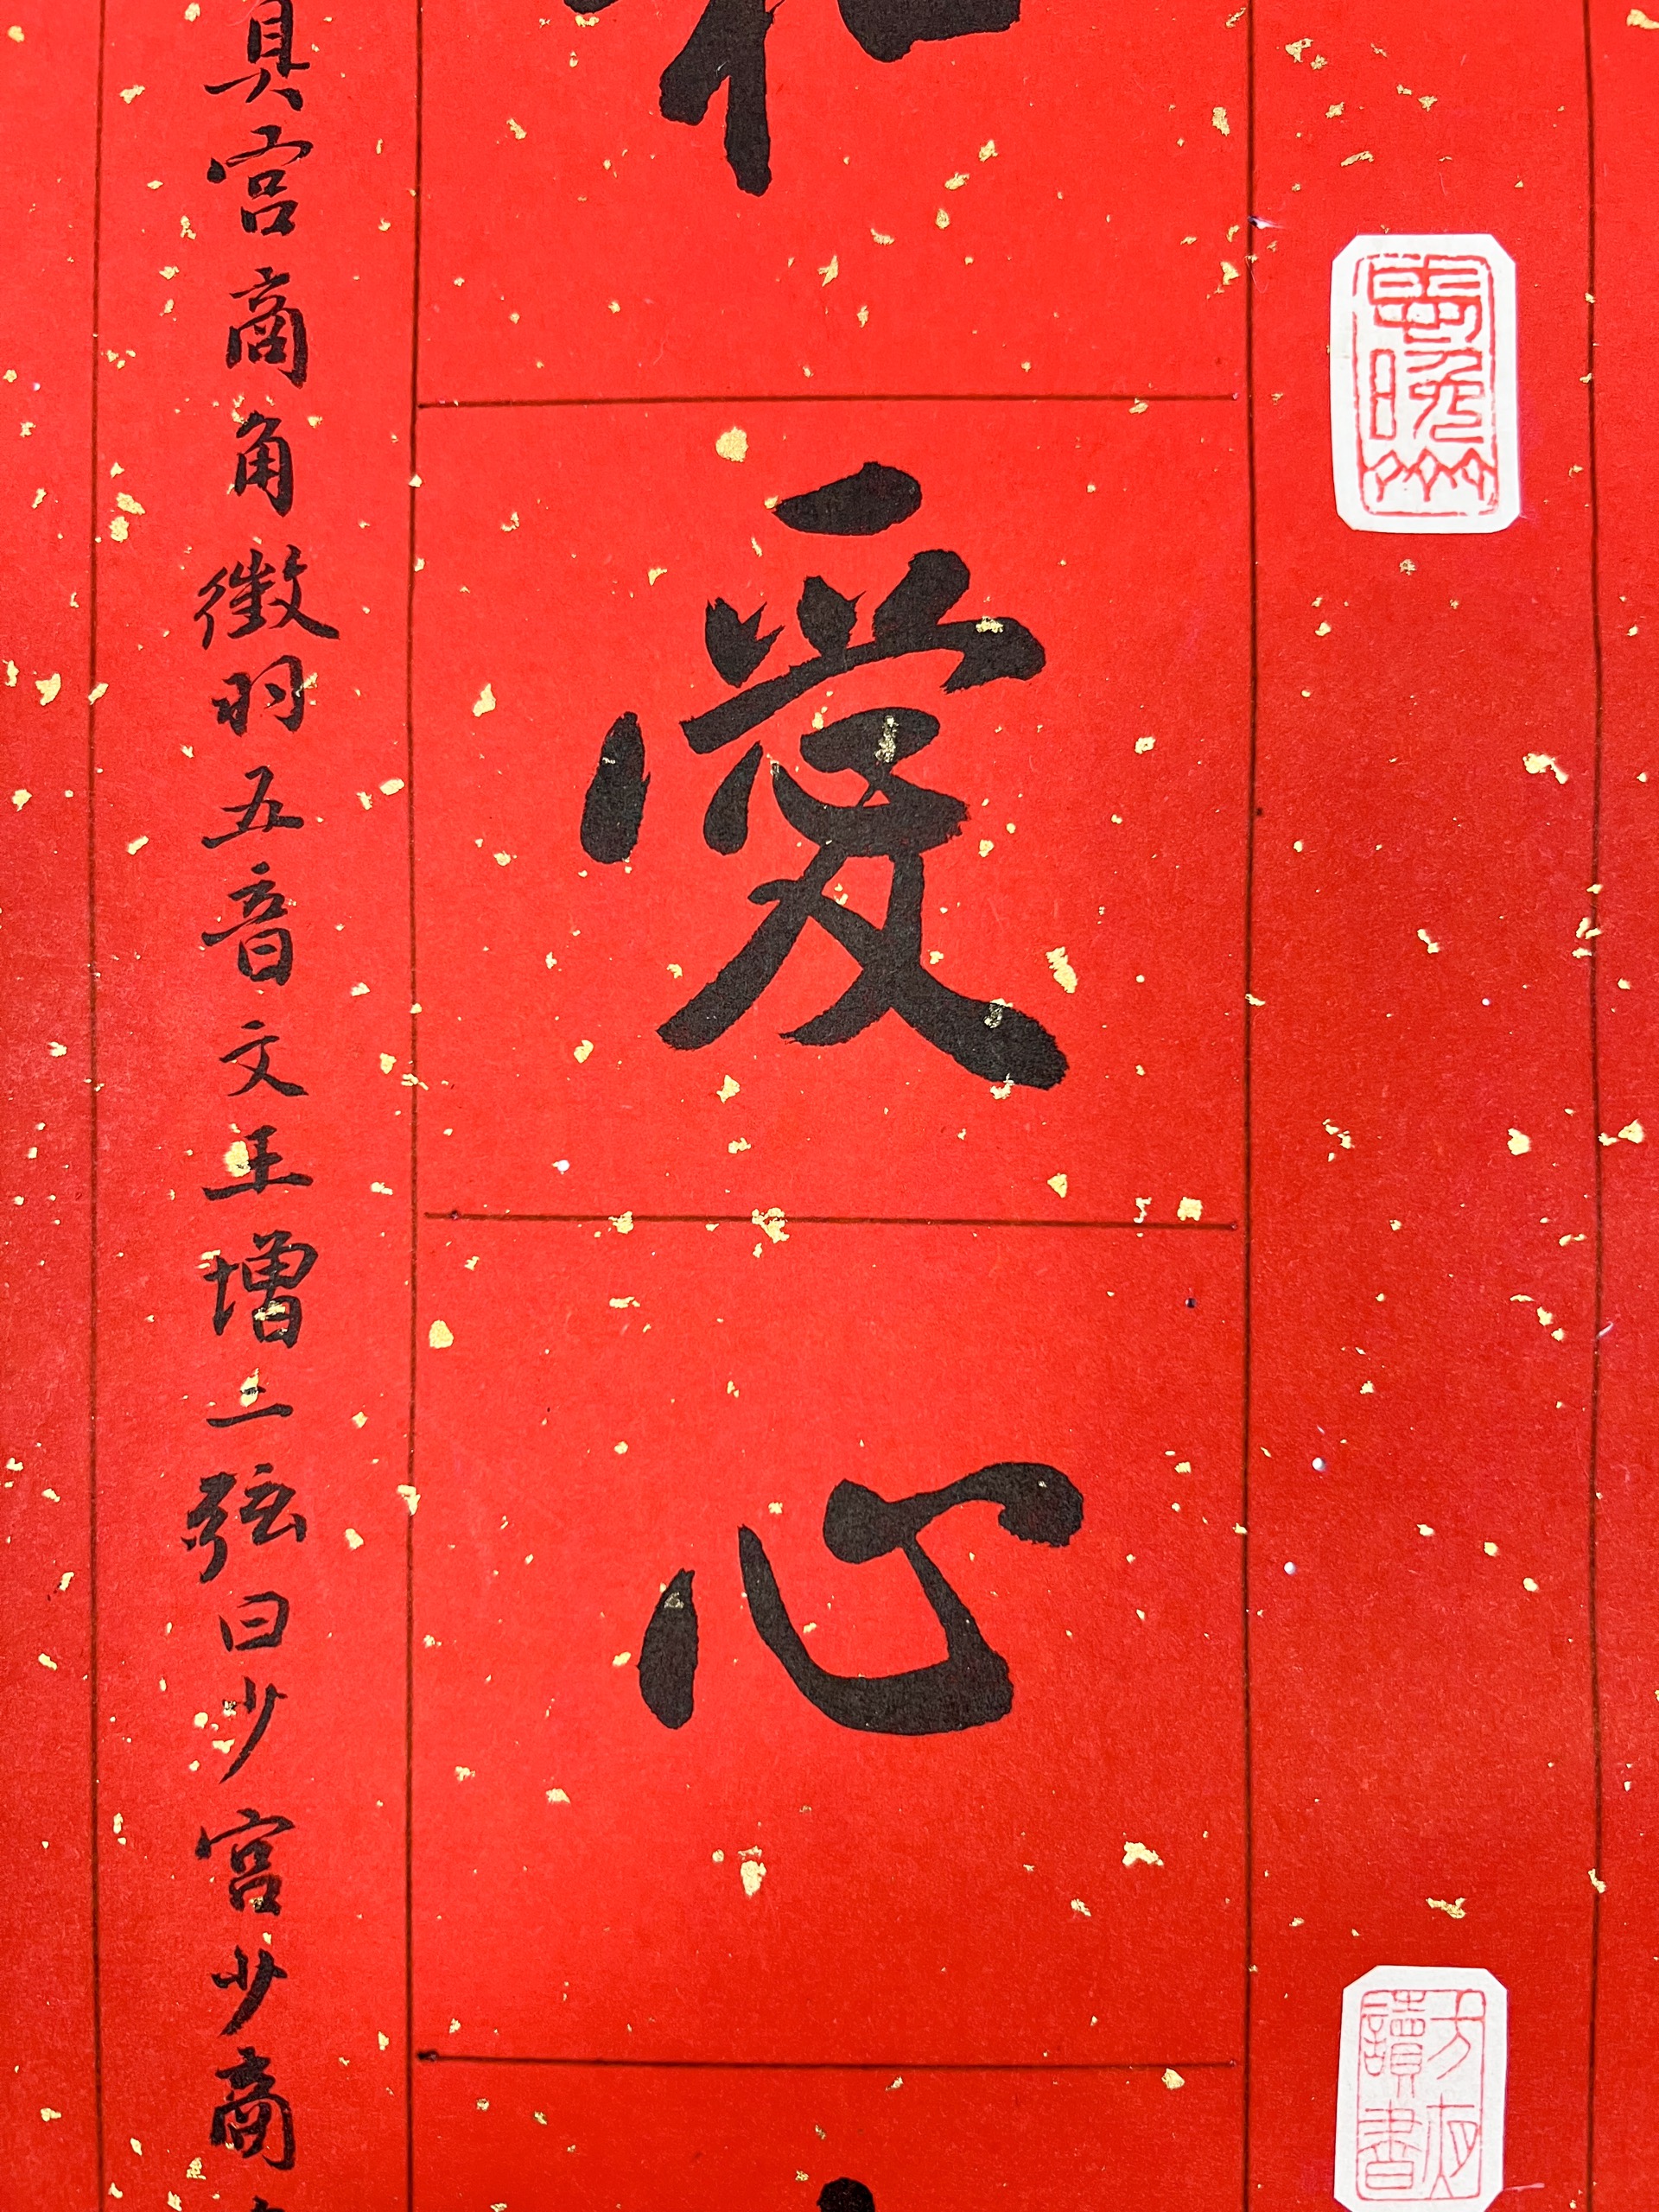 讀書
愛心
具宫商角徵羽五音文王增二弦曰少宫少商